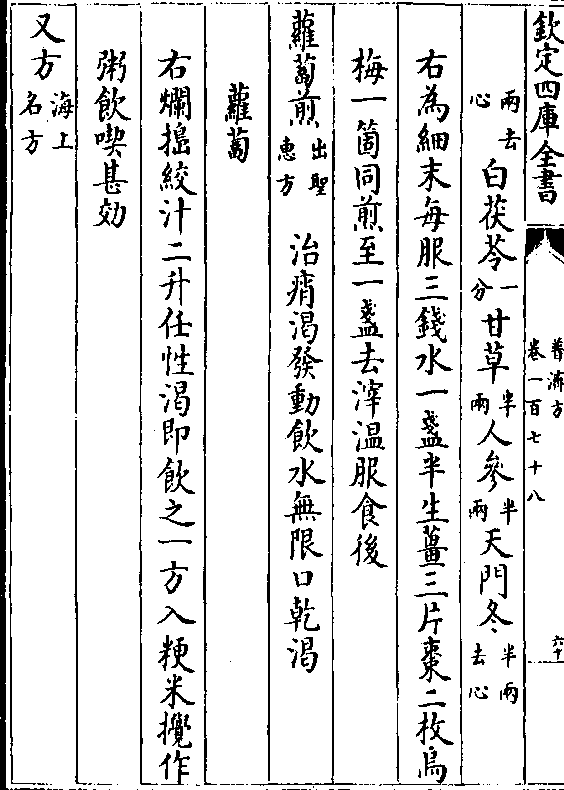 欽定四庫全書
普濟方
卷一百七十八
六十
兩去心白茯苓一分甘草半兩人參半兩天門冬半兩去心
右為細末每服三錢水一盞半生薑三片棗二枚烏
梅一箇同煎至一盞去滓温服食後
蘿蔔煎出聖惠方 治痟渇發動飲水無限口乾渇
蘿蔔
右爛搗絞汁二升任性渇即飲之一方入粳米攪作
粥飲喫甚効
又方海上名方